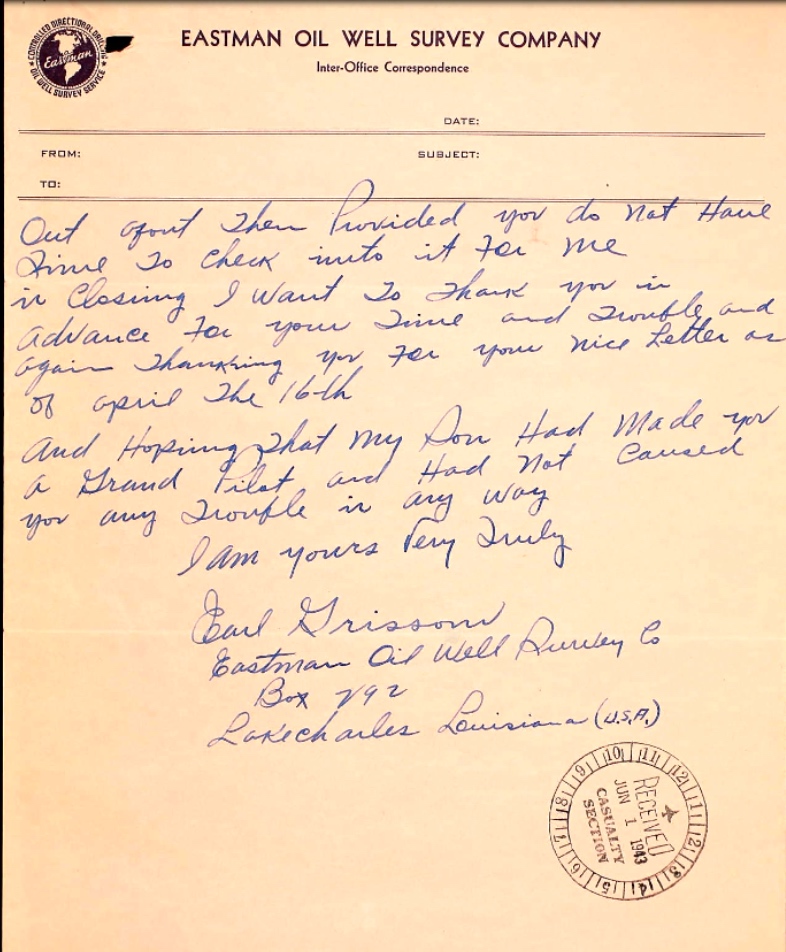 CONTROLLED DIRECTIONAL DRILLING
Eastman
OIL WELL SURVEY SERVICE
EASTMAN OIL WELL SURVEY COMPANY
Inter-Office Correspondence
DATE:
FROM:
SUBJECT:
TO:
Out about Them Provided you do Not Have
Time To Check into it For Me
in Closing I Want To Thank you in
Advance For your Time and Trouble and
again Thanking you For your Nice Letter as
of april The 16th
And Hoping That My Son Had Made you
a Grand Pilot and Had Not Caused
you any Trouble in any way
I am yours Very Truly
Earl Grissom
Eastman Oil Well Survey Co
Box 792
Lakecharles Louisiana (U.S.A.)
RECEIVED
JUN 1 1943
CASUALTY
SECTION
9 10 11 12 1 2 3 4 5 6 7 8